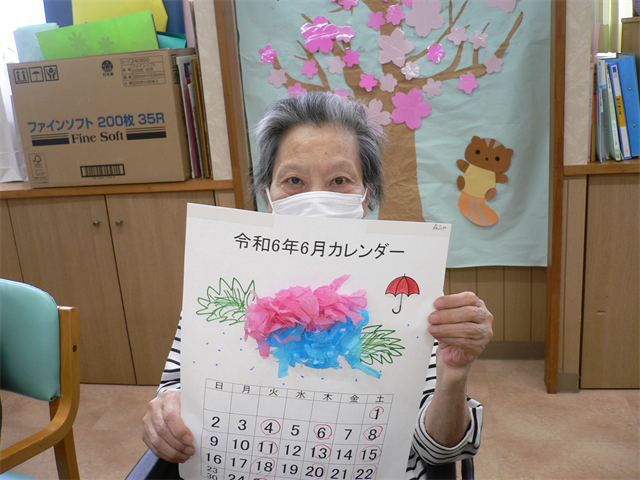 ファインソフト 200枚 35R
Fine Soft
令和6年6月カレンダー
日 月 火 水 木 金 土
1
2 3 4 5 6 7 8
9 10 11 12 13 14 15
16 17 18 19 20 21 22
23 24
30